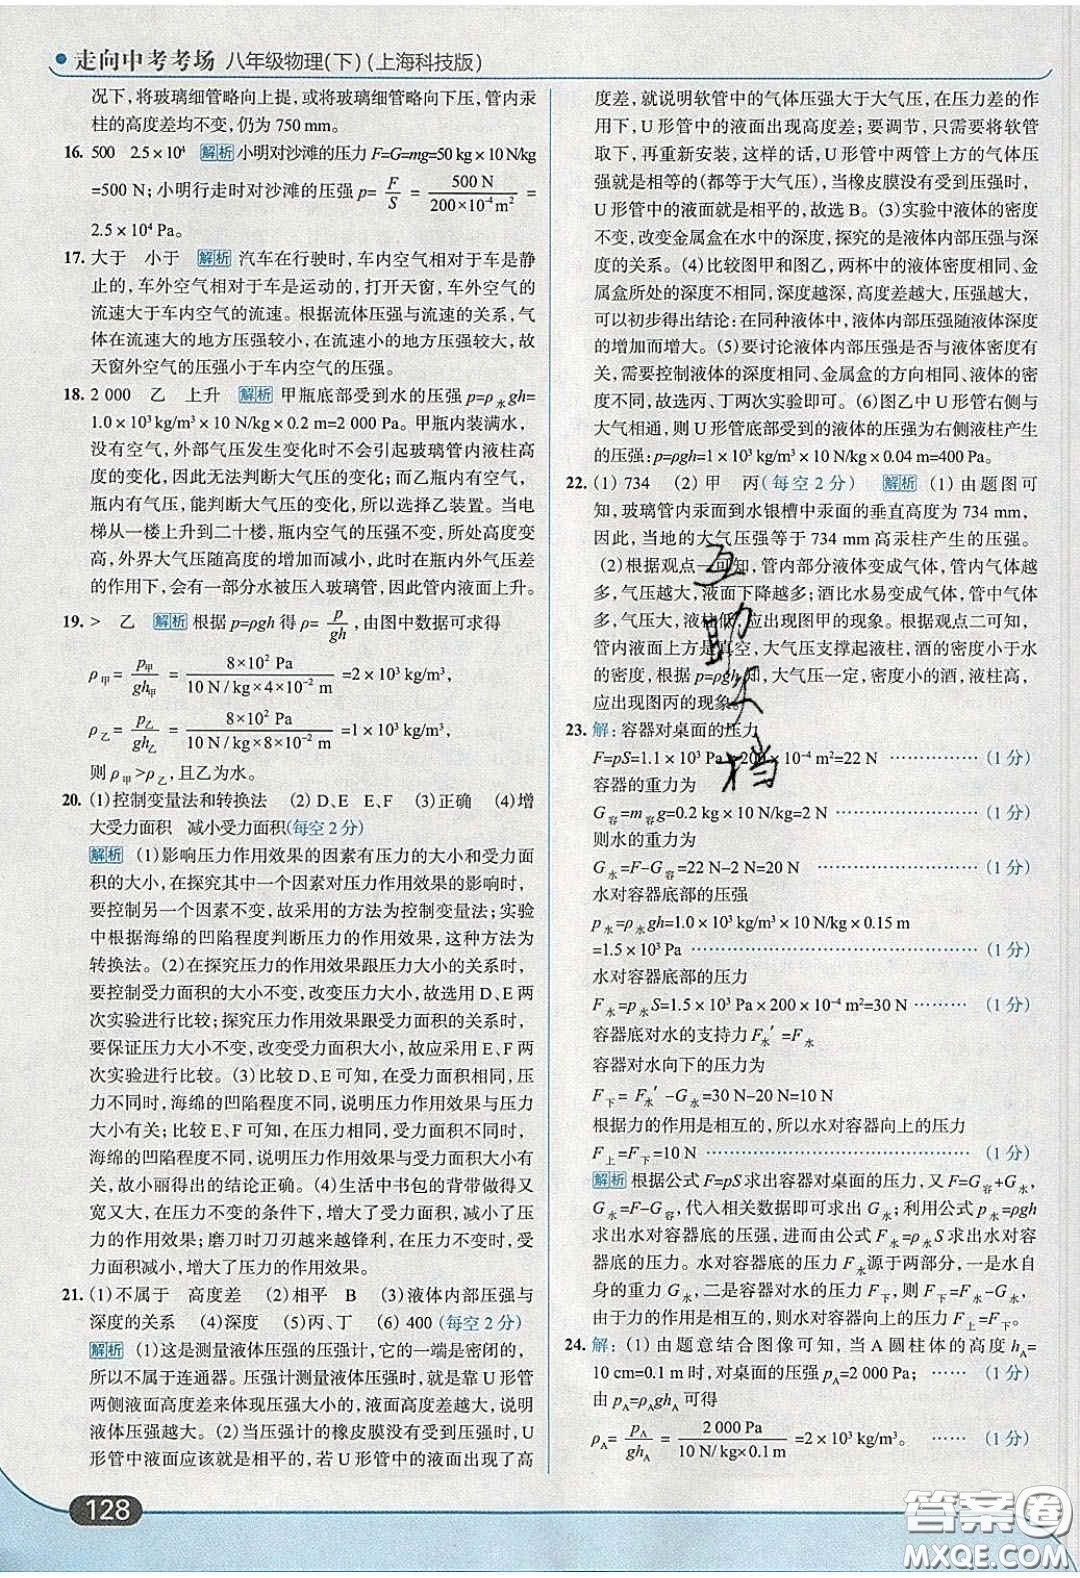 走向中考考场 八年级物理(下)(上海科技版)
况下,将玻璃细管略向上提,或将玻璃细管略向下压,管内汞
柱的高度差均不变,仍为 750 mm。
16. 500 2.5×10⁴ 解析 小明对沙滩的压力 F=G=mg=50 kg×10 N/kg
=500 N;小明行走时对沙滩的压强 p= F/S = 500 N/200×10⁻⁴m² =
2.5×10⁴ Pa。
17. 大于 小于 解析 汽车在行驶时,车内空气相对于车是静
止的,车外空气相对于车是运动的,打开天窗,车外空气的
流速大于车内空气的流速。根据流体压强与流速的关系,气
体在流速大的地方压强较小,在流速小的地方压强较大,故
天窗外空气的压强小于车内空气的压强。
18. 2 000 乙 上升 解析 甲瓶底部受到水的压强 p=ρ水gh=
1.0×10³ kg/m³×10 N/kg×0.2 m=2 000 Pa。甲瓶内装满水,
没有空气,外部气压发生变化时不会引起玻璃管内液柱高
度的变化,因此无法判断大气压的变化;而乙瓶内有空气,
瓶内有气压,能判断大气压的变化,所以选择乙装置。当电
梯从一楼上升到二十楼,瓶内空气的压强不变,所处高度变
高,外界大气压随高度的增加而减小,此时在瓶内外气压差
的作用下,会有一部分水被压入玻璃管,因此管内液面上升。
19. > 乙 解析 根据 p=ρgh 得 ρ= p/gh ,由图中数据可求得
ρ甲= p甲/gh甲 = 8×10² Pa/10 N/kg×4×10⁻² m =2×10³ kg/m³,
ρ乙= p乙/gh乙 = 8×10² Pa/10 N/kg×8×10⁻² m =1×10³ kg/m³,
则 ρ甲>ρ乙,且乙为水。
20. (1)控制变量法和转换法 (2)D、E E、F (3)正确 (4)增
大受力面积 减小受力面积(每空2分)
解析 (1)影响压力作用效果的因素有压力的大小和受力面
积的大小,在探究其中一个因素对压力作用效果的影响时,
要控制另一个因素不变,故采用的方法为控制变量法;实验
中根据海绵的凹陷程度判断压力的作用效果,这种方法为
转换法。(2)在探究压力的作用效果跟压力大小的关系时,
要控制受力面积的大小不变,改变压力大小,故选用 D、E 两
次实验进行比较;探究压力的作用效果跟受力面积的关系,
要保证压力大小不变,改变受力面积,故应采用 E、F 两
次实验进行比较。(3)比较 D、E 可知,在受力面积相同,压
力不同时,海绵的凹陷程度不同,说明压力作用效果与压力
大小有关;比较 E、F 可知,在压力相同,受力面积不同时,
海绵的凹陷程度不同,说明压力作用效果与受力面积有关,
故小丽得出的结论正确。(4)生活中书包的背带做得又
宽又大,在压力不变的条件下,增大了受力面积,减小了压
力的作用效果;磨刀时刀刃越来越锋利,在压力不变时,受
力面积减小,增大了压力的作用效果。
21. (1)不属于 高度差 (2)相平 B (3)液体内部压强与
深度的关系 (4)深度 (5)丙、丁 (6) 400 (每空2分)
解析 (1)这是测量液体压强的压强计,它的一端是密闭的,
所以不属于连通器。压强计测量液体压强时,就是靠 U 形管
两侧液面高度差来体现压强大小的,液面高度差越大,说明
液体压强越大。(2)当压强计的橡皮膜没有受到压强时,U
形管中液面应该就是相平的,若 U 形管中的液面出现了高
度差,就说明软管中的气体压强大于大气压,在压力差的作
用下,U 形管中的液面出现高度差;要调节,只需要将软管
取下,再重新安装,这样的话,U 形管中两管上方的气体压
强就是相等的(都等于大气压),当橡皮膜没有受到压强时,
U 形管中的液面就是相平的,故选 B。(3)实验中液体的密度
不变,改变金属盒在水中的深度,探究的是液体内部压强与深
度的关系。(4)比较图甲和图乙,两杯中的液体密度相同、金
属盒所处的深度不相同,深度越深,高度差越大,压强越大,
可以初步得出结论:在同种液体中,液体内部压强随液体深度
的增加而增大。(5)要讨论液体内部压强是否与液体密度有
关,需要控制液体的深度相同、金属盒的方向相同、液体密度
不同,故选丙、丁两次实验即可。(6)图乙中 U 形管右侧与
大气相通,则 U 形管底部受到的液体的压强为右侧液柱产生
的压强:p=ρgh=1×10³ kg/m³×10 N/kg×0.04 m=400 Pa。
22. (1) 734 (2)甲 丙(每空2分) 解析 (1)由题图可
知,玻璃管内汞面到水银槽中汞面的垂直高度为 734 mm,
因此,当地的大气压强等于 734 mm 高汞柱产生的压强。
(2)根据观点一可知,管内部分液体变成气体,管内气体越
多,气压越大,液面下降越多;酒比水易变成气体,管中气体
多,气压大,液柱低,应出现图甲的现象。根据观点二可知,
管内液面上方是真空,大气压支撑起液柱,酒的密度小于水
的密度,根据 p=ρgh 知,大气压一定,密度小的酒,液柱高,
应出现图丙的现象。
23. 解:容器对桌面的压力
F=pS=1.1×10³ Pa×200×10⁻⁴ m²=22 N ………… (1分)
容器的重力为
G容=m容g=0.2 kg×10 N/kg=2 N ………… (1分)
则水的重力为
G水=F−G容=22 N−2 N=20 N ………… (1分)
水对容器底部的压强
p水=ρ水gh=1.0×10³ kg/m³×10 N/kg×0.15 m
=1.5×10³ Pa ………… (1分)
水对容器底部的压力
F水=p水S=1.5×10³ Pa×200×10⁻⁴ m²=30 N ……… (1分)
容器底对水的支持力F水′=F水
容器对水向下的压力为
F下= F水′−G水=30 N−20 N=10 N
根据力的作用是相互的,所以水对容器向上的压力
F上=F下=10 N ………… (1分)
解析 根据公式 F=pS 求出容器对桌面的压力,又 F=G容+G水,
G水=F−G容,代入相关数据即可求出 G水;利用公式 p水=ρgh
求出水对容器底的压强,进而由公式 F水=p水S 求出水对容
器底的压力。水对容器底的压力 F水源于两部分,一是水自
身的重力 G水,二是容器对水的压力 F下,所以 F下=F水−G水,
由于力的作用是相互的,则水对容器的压力 F上=F下。
24. 解:(1)由题意结合图像可知,当 A 圆柱体的高度 hA=
10 cm=0.1 m 时,对桌面的压强 pA=2 000 Pa; …… (1分)
由 pA=ρAghA 可得
ρA= pA/ghA = 2 000 Pa/10 N/kg×0.1 m =2×10³ kg/m³。 …… (1分)
互
助
文
档
128
答案圈
MXQE.COM